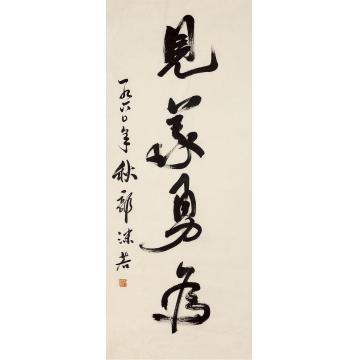 見義勇為
一九六〇年秋 郭沫若